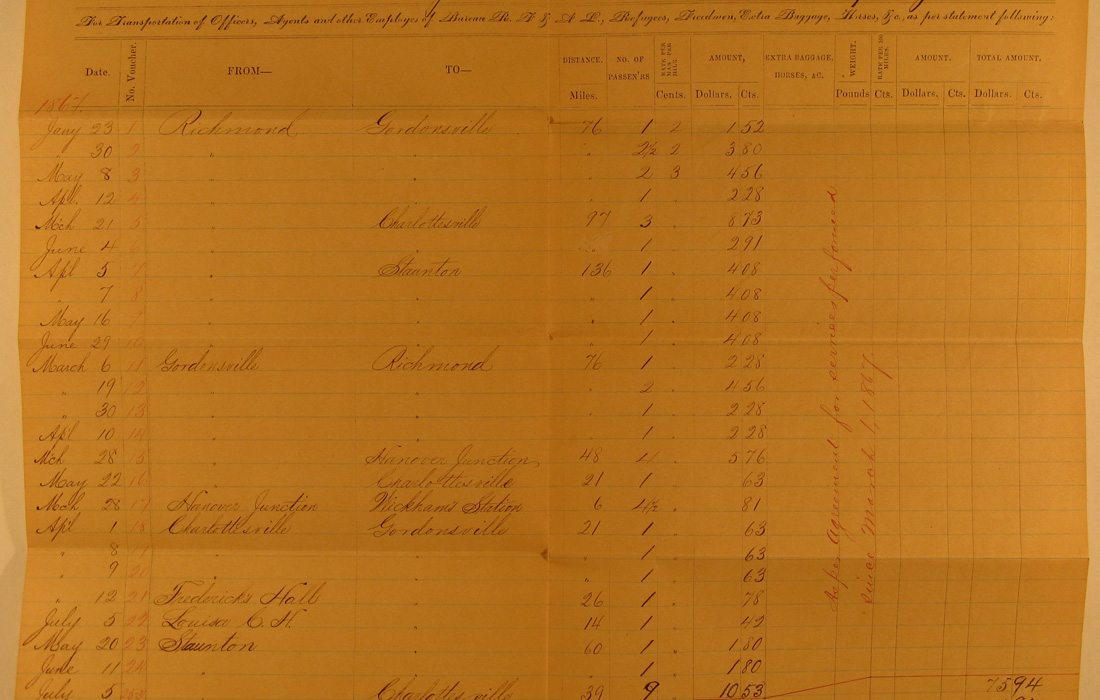 For Transportation of Officers, Agents and other Employes of Bureau R. F. & A. L., Refugees, Freedmen, Extra Baggage, Horses, &c., as per statement following:
Date. No. Voucher. FROM— TO— DISTANCE. Miles. NO. OF PASSEN'RS RATE PER MAN PER MILE. Cents. AMOUNT, Dollars. Cts. EXTRA BAGGAGE, HORSES, &C. WEIGHT. Pounds RATE PER 100 MILES. Cts. AMOUNT. Dollars. Cts. TOTAL AMOUNT. Dollars. Cts.
1867.
Jany 23 1 Richmond Gordonsville 76 1 2 1 52
" 30 2 " " " 2½ 2 3 80
May 8 3 " " " 2 3 4 56
Apl. 12 4 " " " 1 " 2 28
Mch 21 5 " Charlottesville 97 3 " 8 73
June 4 6 " " 1 " 2 91
Apl 5 7 " Staunton 136 1 " 4 08
" 7 8 " " " 1 " 4 08
May 16 9 " " " 1 " 4 08
June 29 10 " " " 1 " 4 08
March 6 11 Gordonsville Richmond 76 1 " 2 28
" 19 12 " " " 2 " 4 56
" 30 13 " " " 1 " 2 28
Apl 10 14 " " " 1 " 2 28
Mch 28 15 " Hanover Junction 48 4 " 5 76
May 22 16 " Charlottesville 21 1 " 63
Mch 28 17 Hanover Junction Wickham's Station 6 4½ " 81
Apl 1 18 Charlottesville Gordonsville 21 1 " 63
" 8 19 " " " 1 " 63
" 9 20 " " " 1 " 63
" 12 21 Fredericks Hall " 26 1 " 78
July 5 22 Louisa C. H. " 14 1 " 42
May 20 23 Staunton " 60 1 " 1 80
June 11 24 " " " 1 " 1 80
July 5 25 " Charlottesville 39 9 " 10 53 75 94
As per agreement for services performed
since March 1, 1867.